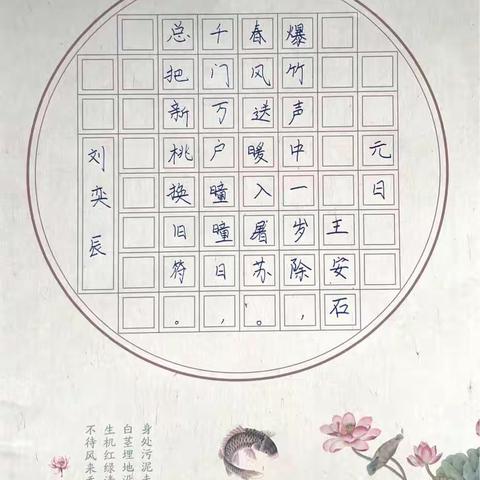 元日
主安石
爆竹声中一岁除，
春风送暖入屠苏。
千门万户瞳瞳日，
总把新桃换旧符。
刘奕辰
身处污泥未
白茎埋地
生机红绿
不待风来